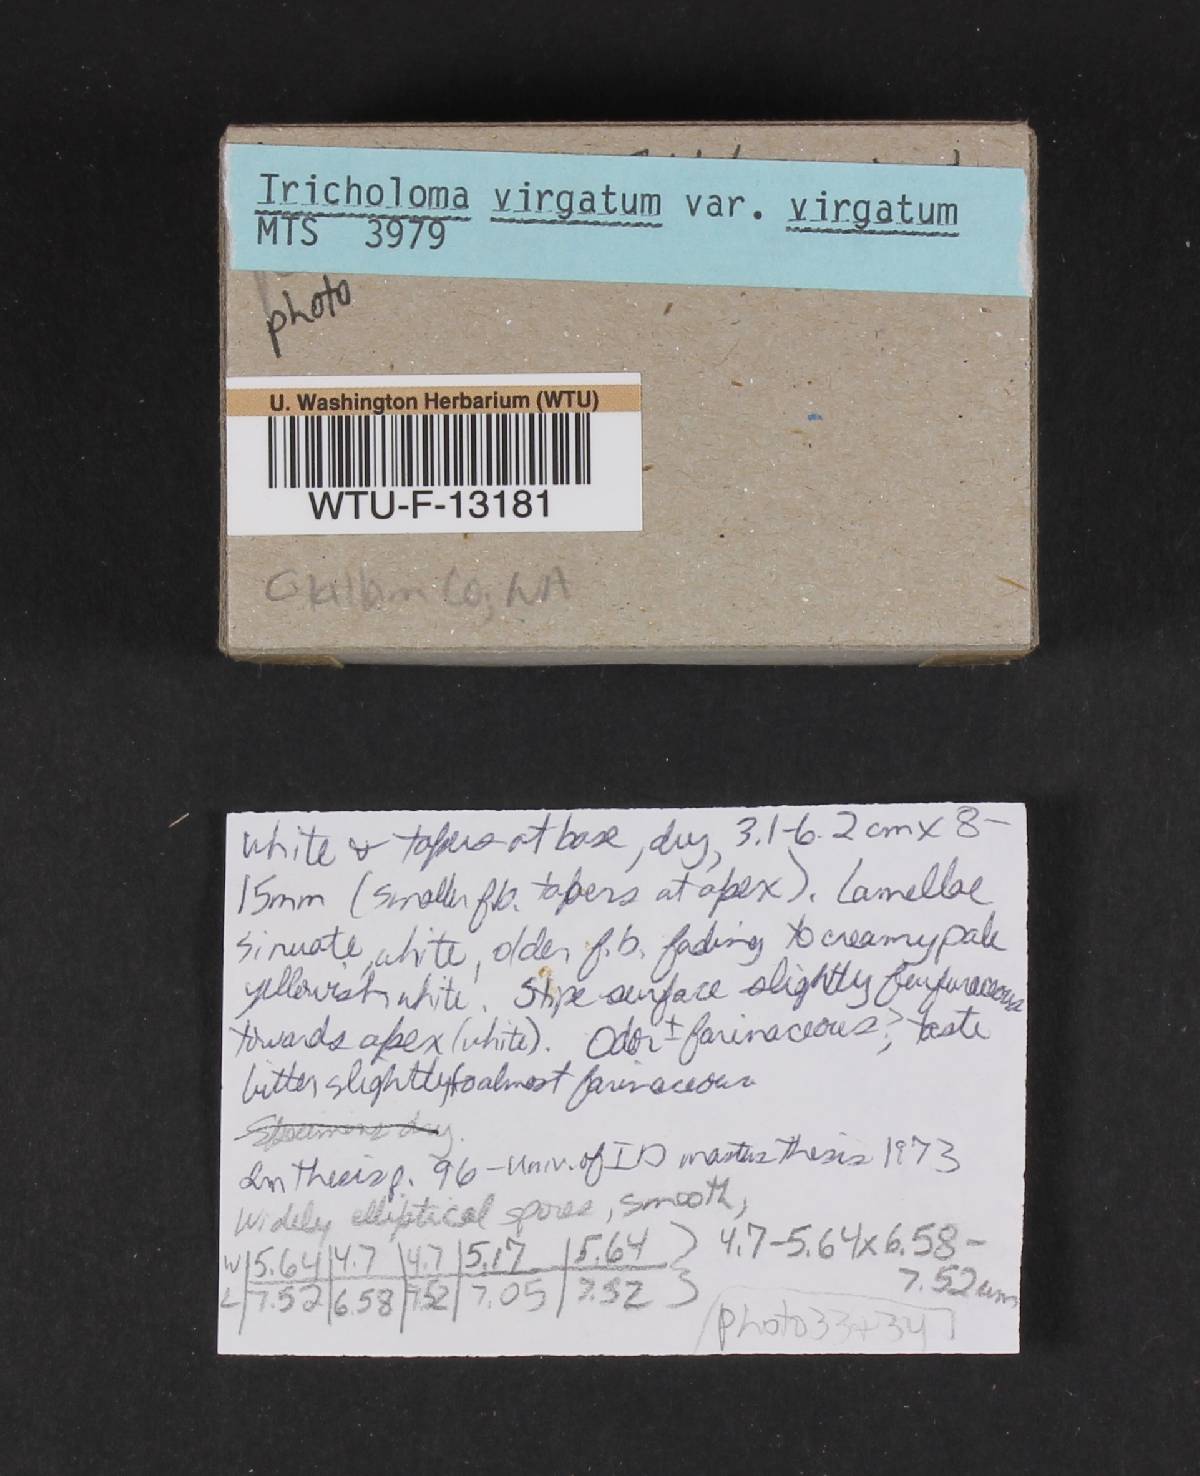 Tricholoma virgatum var. virgatum
MTS 3979
photo
U. Washington Herbarium (WTU)
WTU-F-13181
Clallam Co, WA
white & tapers at base, dry, 3.1-6.2 cm x 8-
15mm (smaller f.b. tapers at apex). Lamellae
sinuate, white, older f.b. fading to creamy pale
yellowish white. Stipe surface slightly furfuraceous
towards apex (white). Odor ± farinaceous?, taste
bitter slightly to almost farinaceous
Specimens dry.
In thesis p. 96 - Univ. of ID masters thesis 1973
Widely elliptical spores, smooth,
W 5.64 4.7 4.7 5.17 5.64 } 4.7-5.64 x 6.58-
L 7.52 6.58 7.52 7.05 7.52 7.52 um
photo 33+34